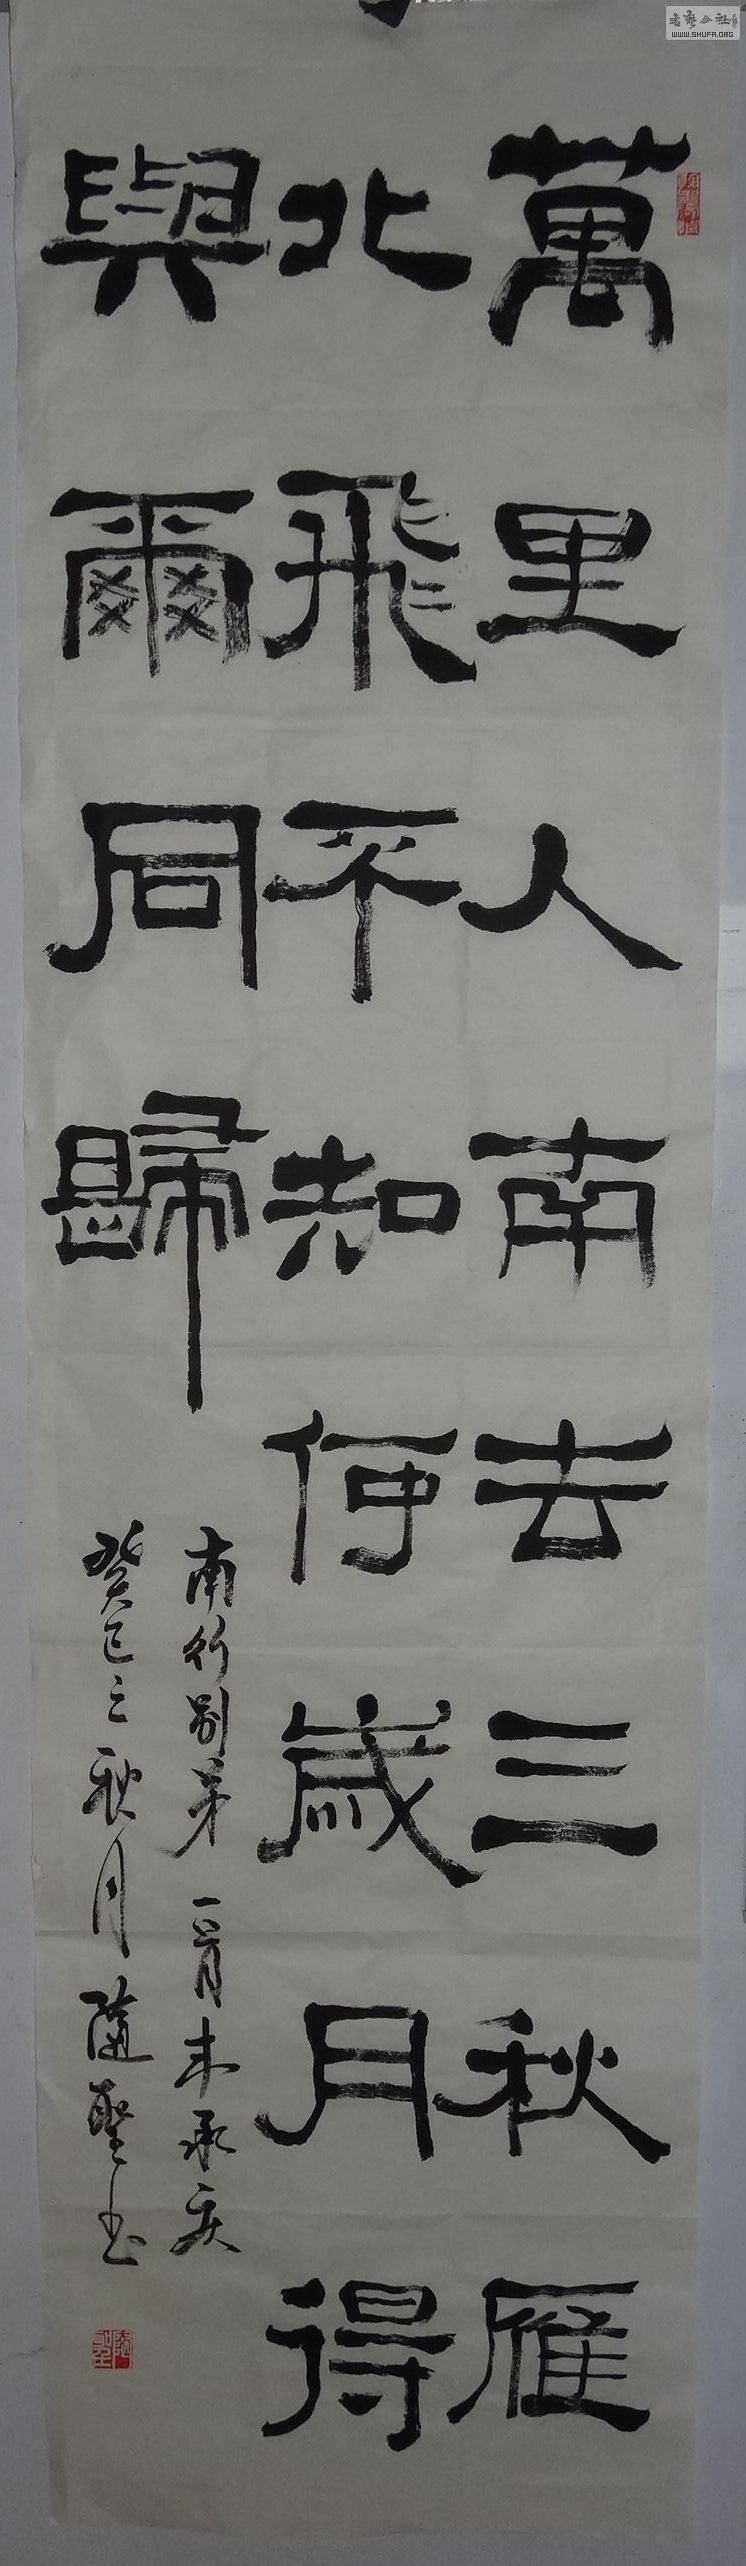 萬里人南去三秋雁
北飛不知何歲月得
與爾同歸
南行别弟 一首 韦承庆
癸巳之秋月隨聖书
書藝公社
WWW.SHUFA.ORG